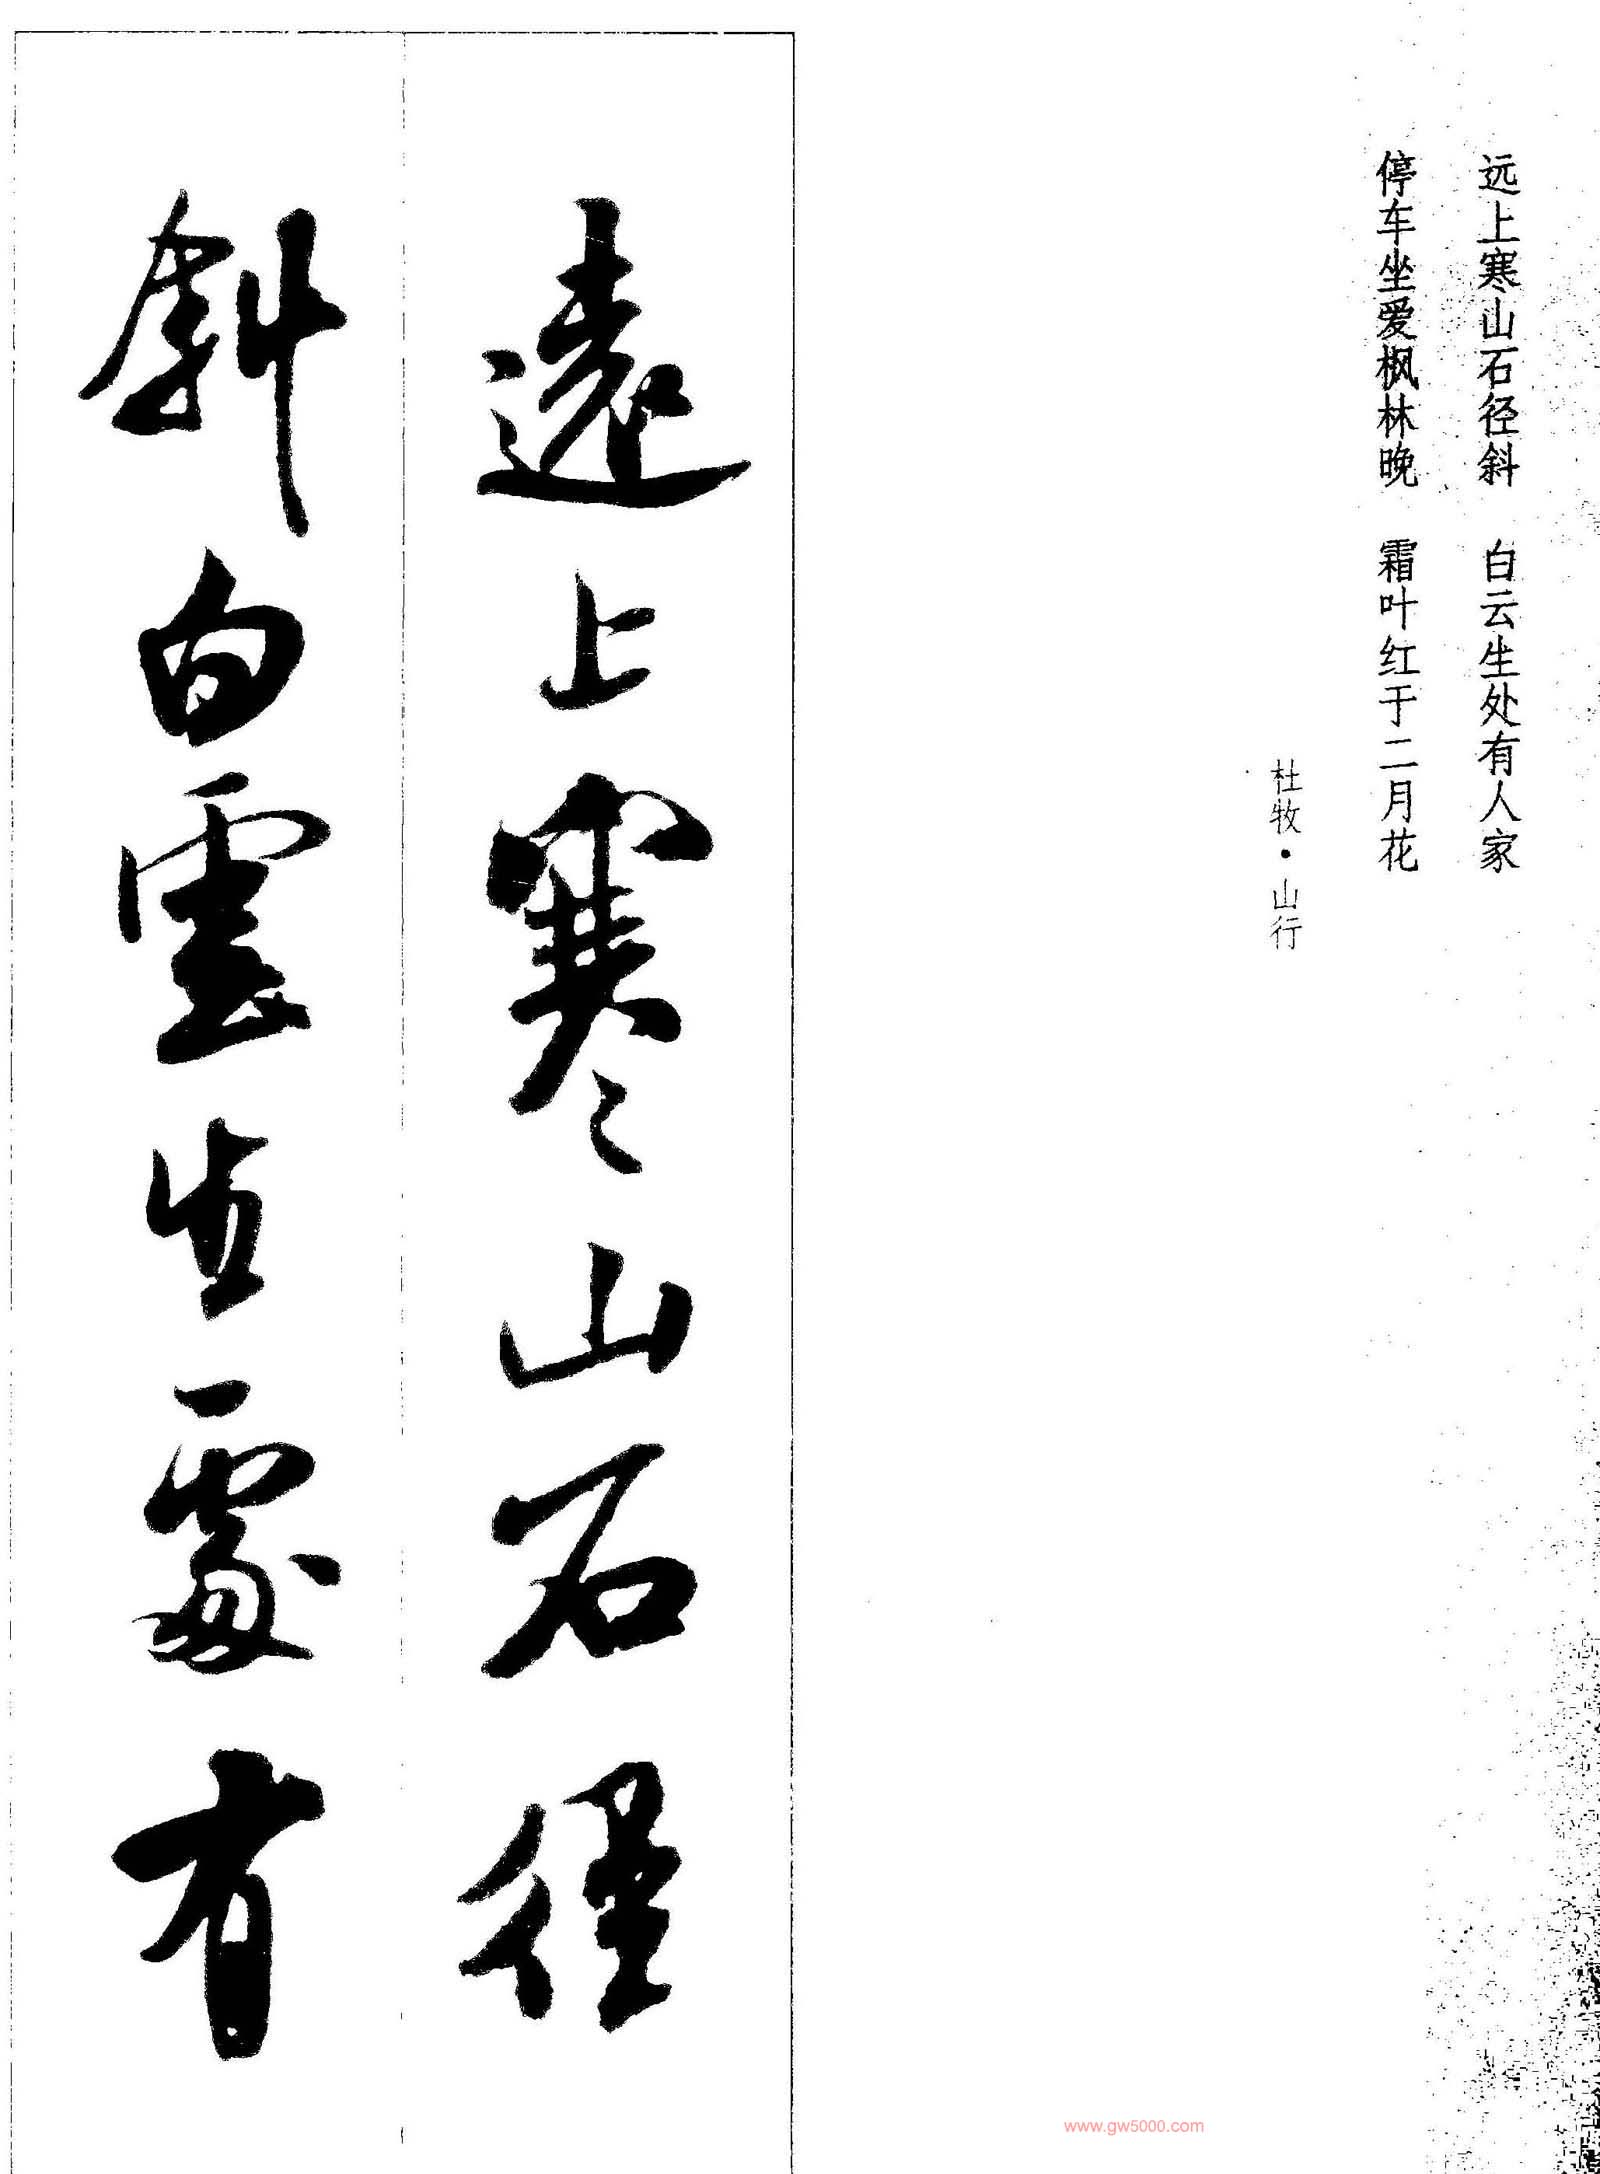 远上寒山石径斜 白云生处有人家
停车坐爱枫林晚 霜叶红于二月花
杜牧·山行
遠上寒山石徑
斜白雲生處有
www.gw5000.com